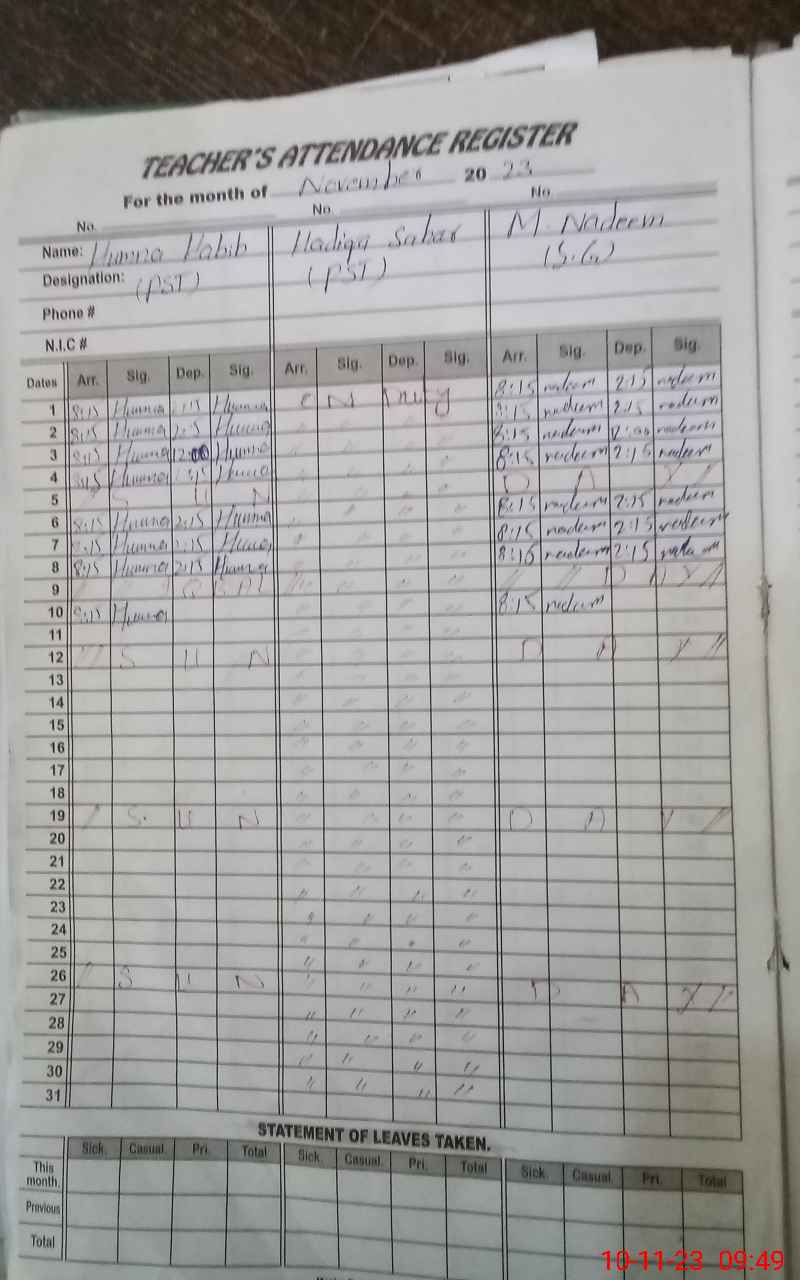 TEACHER'S ATTENDANCE REGISTER
For the month of November 20 23
No. No. No.
Name: Humna Habib Hadiqa Sabar M. Nadeem
Designation: (PST) (PST) (S.G)
Phone #
N.I.C #
Dates Arr. Sig. Dep. Sig. Arr. Sig. Dep. Sig. Arr. Sig. Dep. Sig.
1 8:15 Humna 2:15 Humna ON Duty 8:15 nadeem 2:15 nadeem
2 8:15 Humna 2:15 Humna " " " " 8:15 nadeem 2:15 nadeem
3 8:15 Humna 12:00 Humna " " " " 8:15 nadeem 12:00 nadeem
4 8:15 Humna 2:15 Humna " " " " 8:15 nadeem 2:15 nadeem
5 S U N " " " " D A Y //
6 8:15 Humna 2:15 Humna " " " " 8:15 nadeem 2:15 nadeem
7 8:15 Humna 2:15 Humna " " " " 8:15 nadeem 2:15 nadeem
8 8:15 Humna 2:15 Humna " " " " 8:15 nadeem 2:15 nadeem
9 IQBAL // // // D A Y //
10 8:15 Humna " " " " 8:15 nadeem
11 " " " "
12 // S U N " " " " D A Y //
13 " " " "
14 " " " "
15 " " " "
16 " " " "
17 " " " "
18 " " " "
19 / S. U N " " " " D A Y /
20 " " " "
21 " " " "
22 " " " "
23 " " " "
24 " " " "
25 " " " "
26 / S U N " " " " D A Y //
27 " " " "
28 " " " "
29 " " " "
30 " " " "
31 " " " "
STATEMENT OF LEAVES TAKEN.
Sick. Casual. Pri. Total Sick. Casual. Pri. Total Sick. Casual. Pri. Total
This month.
Previous
Total
10-11-23 09:49